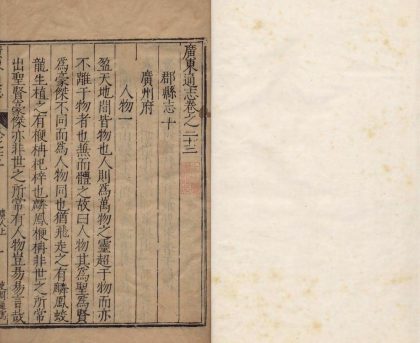 廣東通志卷之二十三
郡縣志十
廣州府
人物一
盈天地間皆物也人則為萬物之靈超于物而亦
不離于物者也兼而體之故曰人物其為聖為賢
為豪傑不同而為人物同也猶飛走之有麟鳳蛟
龍生植之有楩楠杞梓也麟鳳楩楠非世之所常
出聖賢豪傑亦非世之所常有人物豈易易言哉